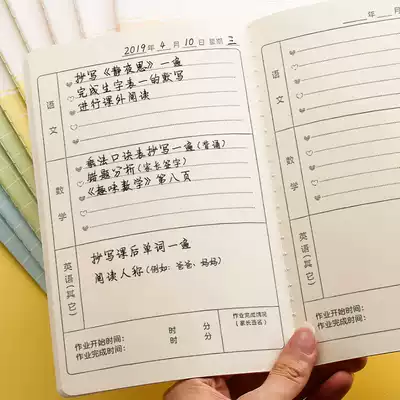 2019年 4月 10日 星期 三
语文
抄写《静夜思》一遍
完成生字表一的默写
进行课外阅读
数学
乘法口诀表抄写一遍(背诵)
错题分析(家长签字)
《趣味数学》第八页
英语(其它)
抄写课后单词一遍
阅读人称(例如:爸爸、妈妈)
作业开始时间: 时 分
作业完成时间: 时 分
作业完成情况
(家长签名)
年
语文
数学
英语(其它)
作业开始时间:
作业完成时间: